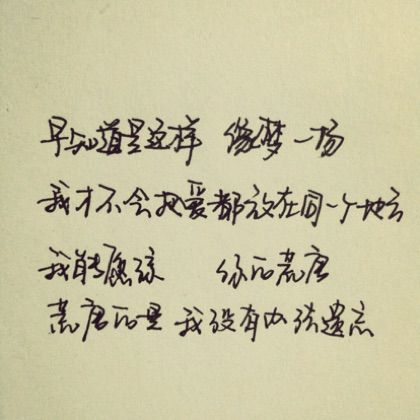 早知道是这样 像梦一场
我才不会把爱都放在同一个地方
我能原谅 你的荒唐
荒唐的是我没有办法遗忘